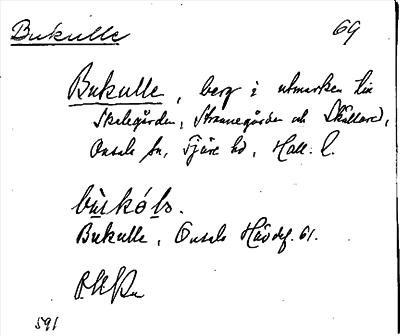 Bukulle 69
Bukulle, berg i utmarken till
Skalegården, Strannegården och Skällared,
Onsala sn, Fjäre hd, Hall. l.
bùskóls.
Bukulle, Onsala Hävdef. 61.
591